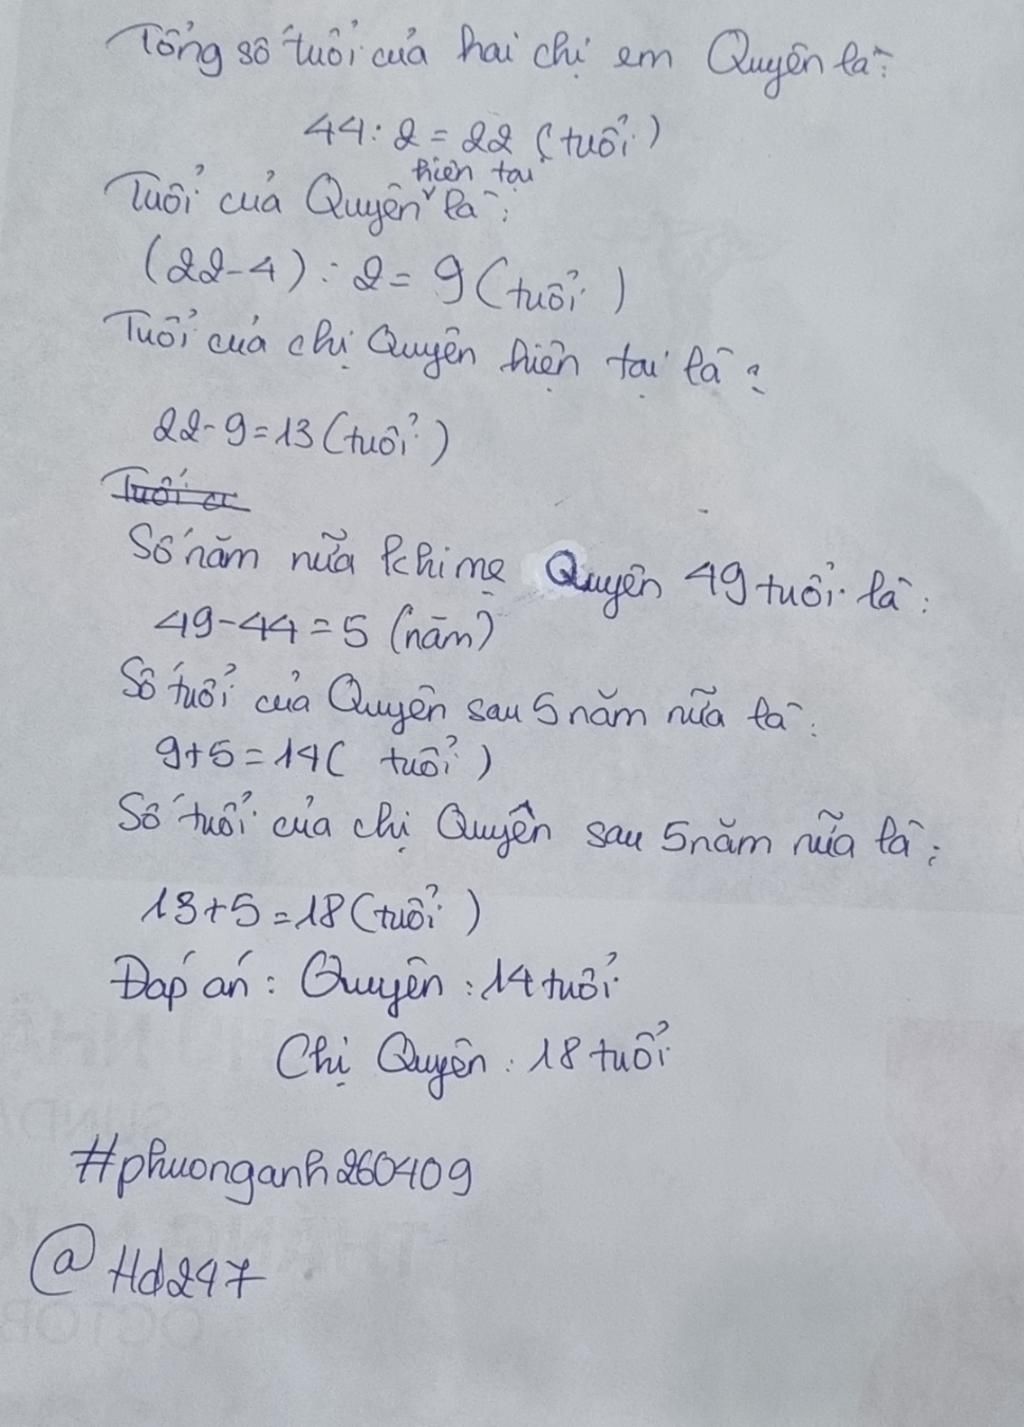 Tổng số tuổi của hai chị em Quyên là:
44 : 2 = 22 (tuổi)
Tuổi của Quyên hiện tại là:
(22-4) : 2 = 9 (tuổi)
Tuổi của chị Quyên hiện tại là:
22-9=13 (tuổi)
Số năm nữa khi mẹ Quyên 49 tuổi là:
49-44=5 (năm)
Số tuổi của Quyên sau 5 năm nữa là:
9+5=14 (tuổi)
Số tuổi của chị Quyên sau 5 năm nữa là:
13+5=18 (tuổi)
Đáp án: Quyên: 14 tuổi
Chị Quyên: 18 tuổi
#phuonganh260409
@Hd247